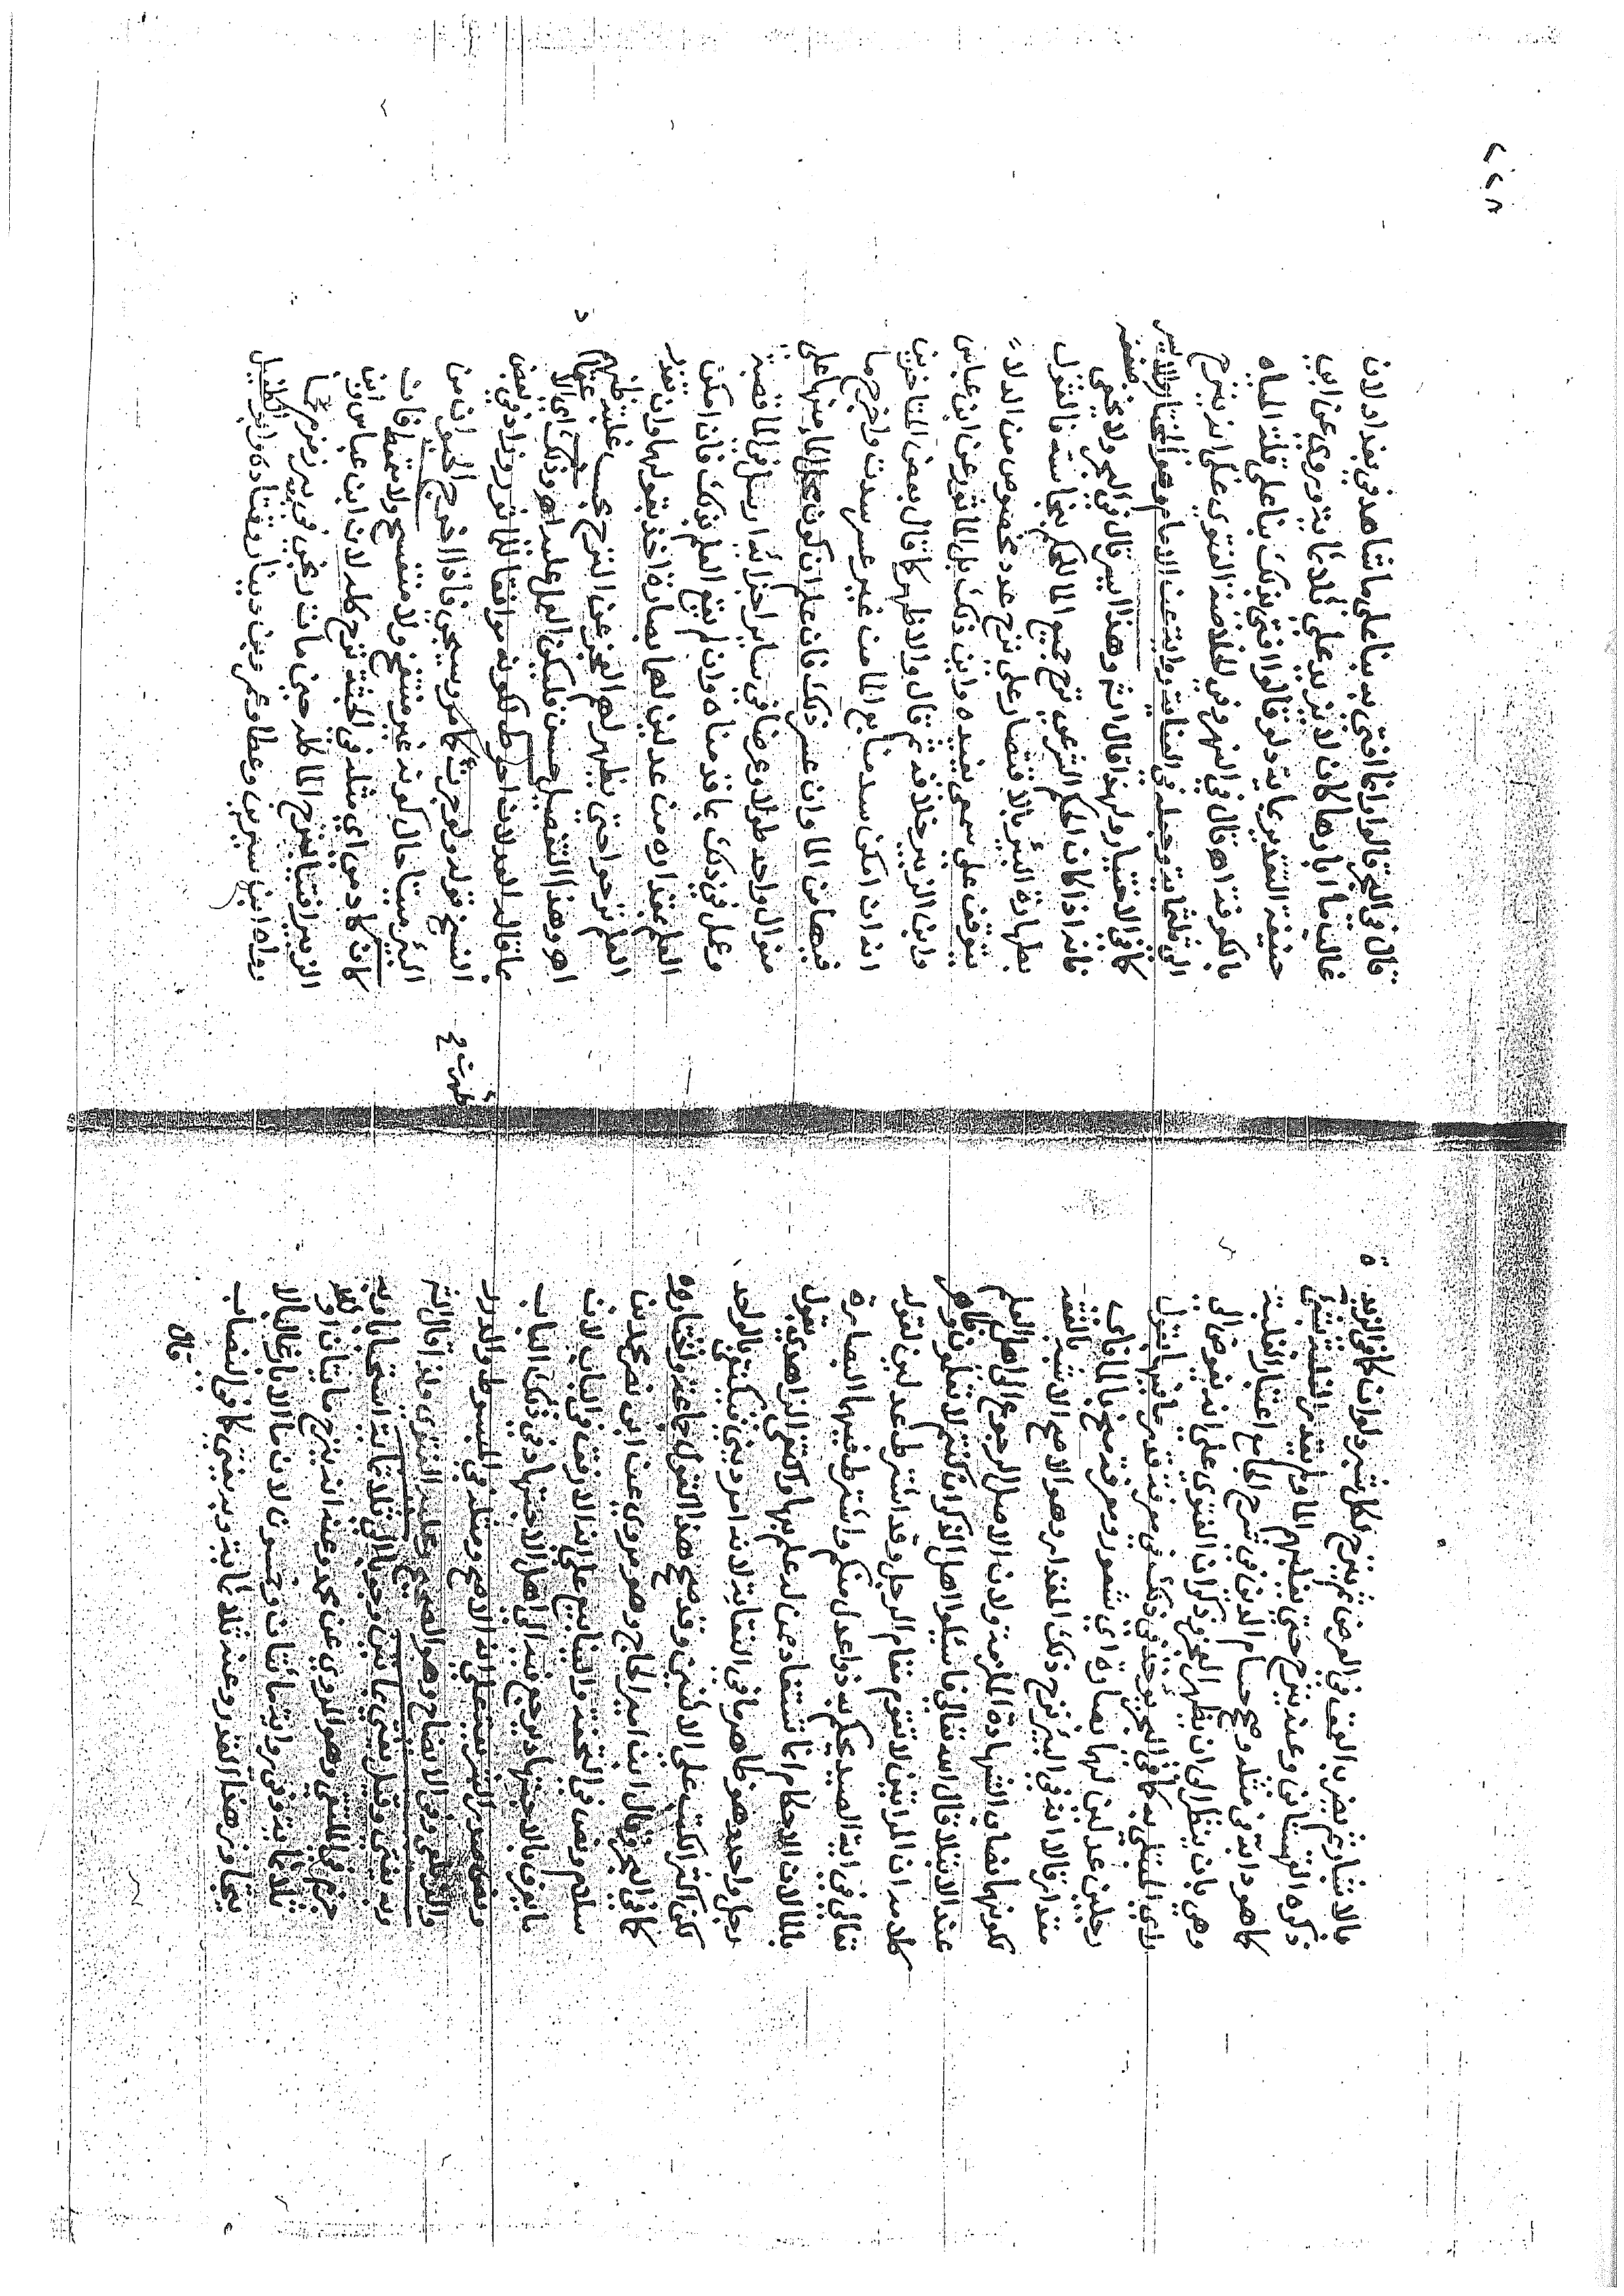 فالاعتبار ثم يضرب العمق في العرض ثم ينزح لكل شبر دلوان كما في
ذكره القهستاني وعنه ينزح حتى يغلبهم الماء ولم يقدر الغلبة بشي
كما هو دأبه في مثله وصحح حسام الدين في شرح الجامع اعتبار الغلبة
وهي بان ينظر الى ان يظهر العجز وذكر ان الفتوى على انه يفوض الى
راي المبتلى به كما في البحر يوخذ في ذلك في معرفة قدر ما فيها بقول
رجلين عدلين لهما بصارة اي شعور ومعرفة صح بالماء فاي
مقدار قالا انه في البئر ينزح ذلك المقدار وهو الاصح الاشبه بالفقه
لكونهما نصاب الشهادة الملزمة ولان الاصل الرجوع الى اهل العلم
عند الابتلاء قال الله تعالى فاسئلوا اهل الذكر ان كنتم لا تعلمون وظاهر
كلامه ان المراتين لا تقوم مقام الرجل وقد اشترط عدلين لقوله
تعالى في اية الصيد يحكم به ذوا عدل منكم واشترط فيهما البصارة
بالماء لان الاحكام انما تستفاد ممن له علم بها واكتفى الزاهدي بقول
رجل واحد وهو ظاهر ما في النقاية لانه امر ديني فيكتفي بالواحد
لكن اكثر الكتب على الاثنين وقد صحح هذا القول جماعة واختاروه
كما في البحر وقال ابن امير الحاج وهو مروي عن ابي نصر محمد بن
سلام ونص في التحفة والينابيع على انه الاوفق وفي الباب لان
ما يعرف بالاجتهاد يرجع فيه الى اهل الاجتهاد في ذلك الباب
ونص صدر الشريعة على انه الاصح ومثله في المبسوط والدرر
والزيلعي وفي الايضاح وهو الصحيح وعليه الفتوى ولذا قال انه
وبه يفتى وقيل يفتى بمائتين وجوبا الى ثلاثمائة استحبابا وبه
جزم في الملتقى وهو المروي عن محمد وعنه انه ينزح مائتان او
ثلاثمائة وفي رواية مائتان وخمسون لان ماء الآبار غالبا لا
يتجاوز هذا القدر وعنه ثلاثمائة وبه يفتى كما في النصاب
قال
٢٢٧
قال في البحر قالوا انما افتى به بناء على ما شاهد في بغداد لان
غالب ماء ابارها كان لا يزيد على ثلاثمائة وروي عن ابي
حنيفة التقدير بمائة دلو قالوا افتى بذلك بناء على قلة المياه
بالكوفة اهـ قال في النهر وفي الخلاصة الفتوى على انه ينزح
الى ثلثمائة وجعله في العناية رواية عن الامام وهو المختار والايسر
كما في الاختيار ولهذا قال انه وهذا ايسر قال في البحر ولا يخفى ضعفه
فانه اذا كان الحكم الشرعي نزح جميع الماء للحكم بنجاسته فالقول
بطهارة البئر بالاقتصار على نزح عدد مخصوص من الدلاء
يتوقف على سمعي يفيده واين ذلك بل الماثور عن ابن عباس
وابن الزبير خلافه ثم قال والاظهر كما قال بعض المتاخرين
انه ان امكن سد منابع الماء من غير عسر سدت واخرج ما
فيها من الماء وان عسر ذلك فان علم ان كون محل الماء منها على
منوال واحد طولا وعرضا في ساير اجزائه ارسل في الماء قصبة
وعمل في ذلك بما قدمناه وان لم يقع العلم بذلك فان امكن
العلم بمقداره من عدلين لهما بصارة اخذ بقولهما وان تعذر
العلم نزحوا حتى يظهر لهم العجز عن النزح بحسب غلبة ظنهم
اهـ وهذا التفصيل حسن فليكن العمل عليه اهـ وذلك اي الا
ما قاله العدلان احوط لكونه موافقا للماثور وزاد في بعض
النسخ قوله ولو جرت كما مر وسيجئ فاذا اخرج الحيوان من
البئر ميتا حال كونه غير منتفخ ولا متفسخ ولا متمعط فان
كان كآدمي اي مثله في الجثة نزح كله لان ابن عباس وابن
الزبير افتيا بنزح الماء كله حين مات زنجي في بير زمزم كما
رواه ابن سيرين وعطاء وعمرو بن دينار وقتادة وابو الطفيل